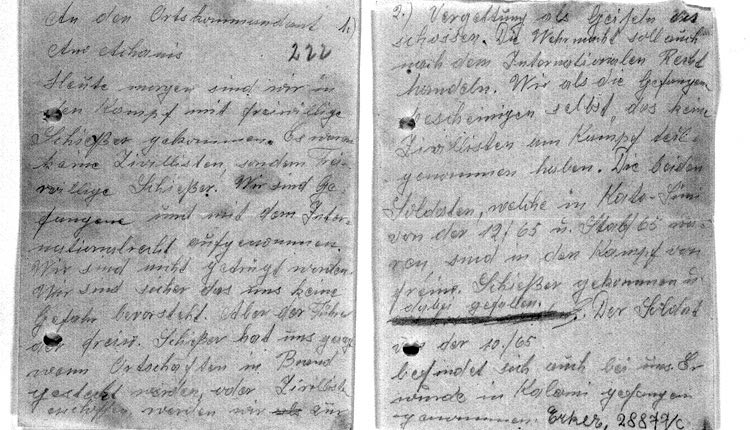 An den Ortskommandant 1.)
Ano Archanis
222
Heute morgen sind wir in
den Kampf mit freiwillige
Schießer gekommen. Es waren
keine Zivillisten, sondern Frei-
willige Schießer. Wir sind Ge-
fangene und mit dem Inter-
nationalrecht aufgenommen.
Wir sind nicht gedrugt worden.
Wir sind sicher das uns keine
Gefahr bevorsteht. Aber der Führer
der freiw. Schießer hat uns gesagt
wenn Ortschaften in Brand
gesteckt werden, oder Zivillisten
erschossen, werden wir als zur
2.) Vergeltung als Geiseln ers
schossen. Die Wehrmacht soll auch
nach dem Internationalen Recht
handeln. Wir als die Gefangen
bescheinigen selbst, das keine
Zivillisten am Kampf teil-
genommen haben. Die beiden
Soldaten, welche in Kato-Simi
von der 12/65 u. Stab/65 wa-
ren, sind in den Kampf von
freiw. Schießer gekommen u.
dabei gefallen. Der Soldat
von der 10/65
befindet sich auch bei uns. Er
wurde in Kalami gefangen
genommen. Erker, 28879/c